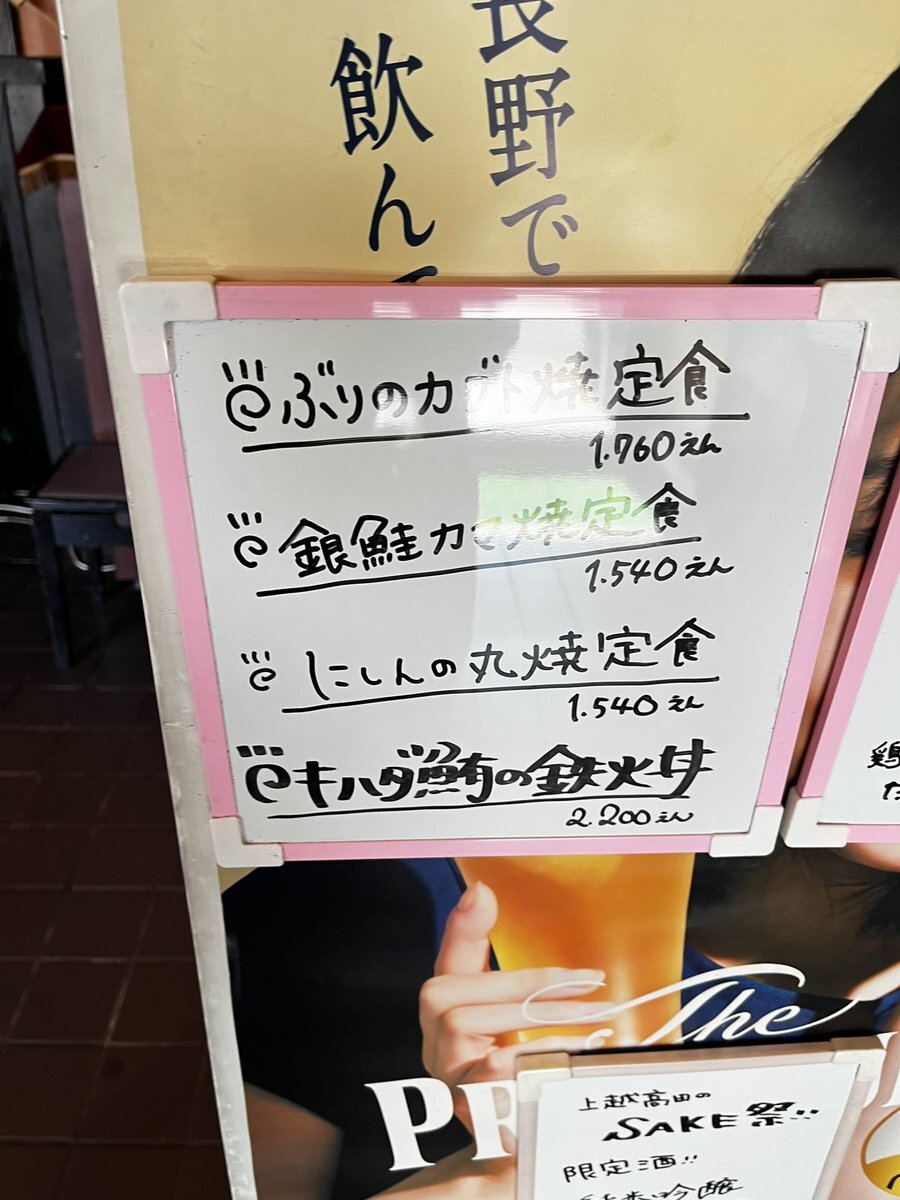 長野で
飲んで
ぶりのカブト焼定食
1.760えん
銀鮭カマ焼定食
1.540えん
にしんの丸焼定食
1.540えん
キハダ鮪の鉄火丼
2.200えん
鶏
た
The
PR
上越高田の
SAKE祭!!
限定酒!!
純米吟醸